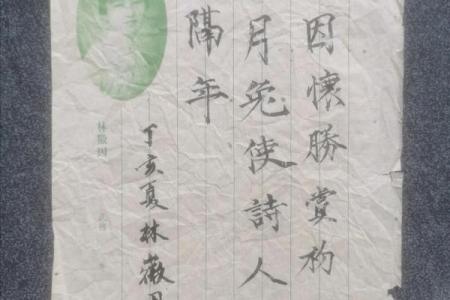 因懷勝賞初
月免使詩人
隔年
丁亥夏林薇
林徽因